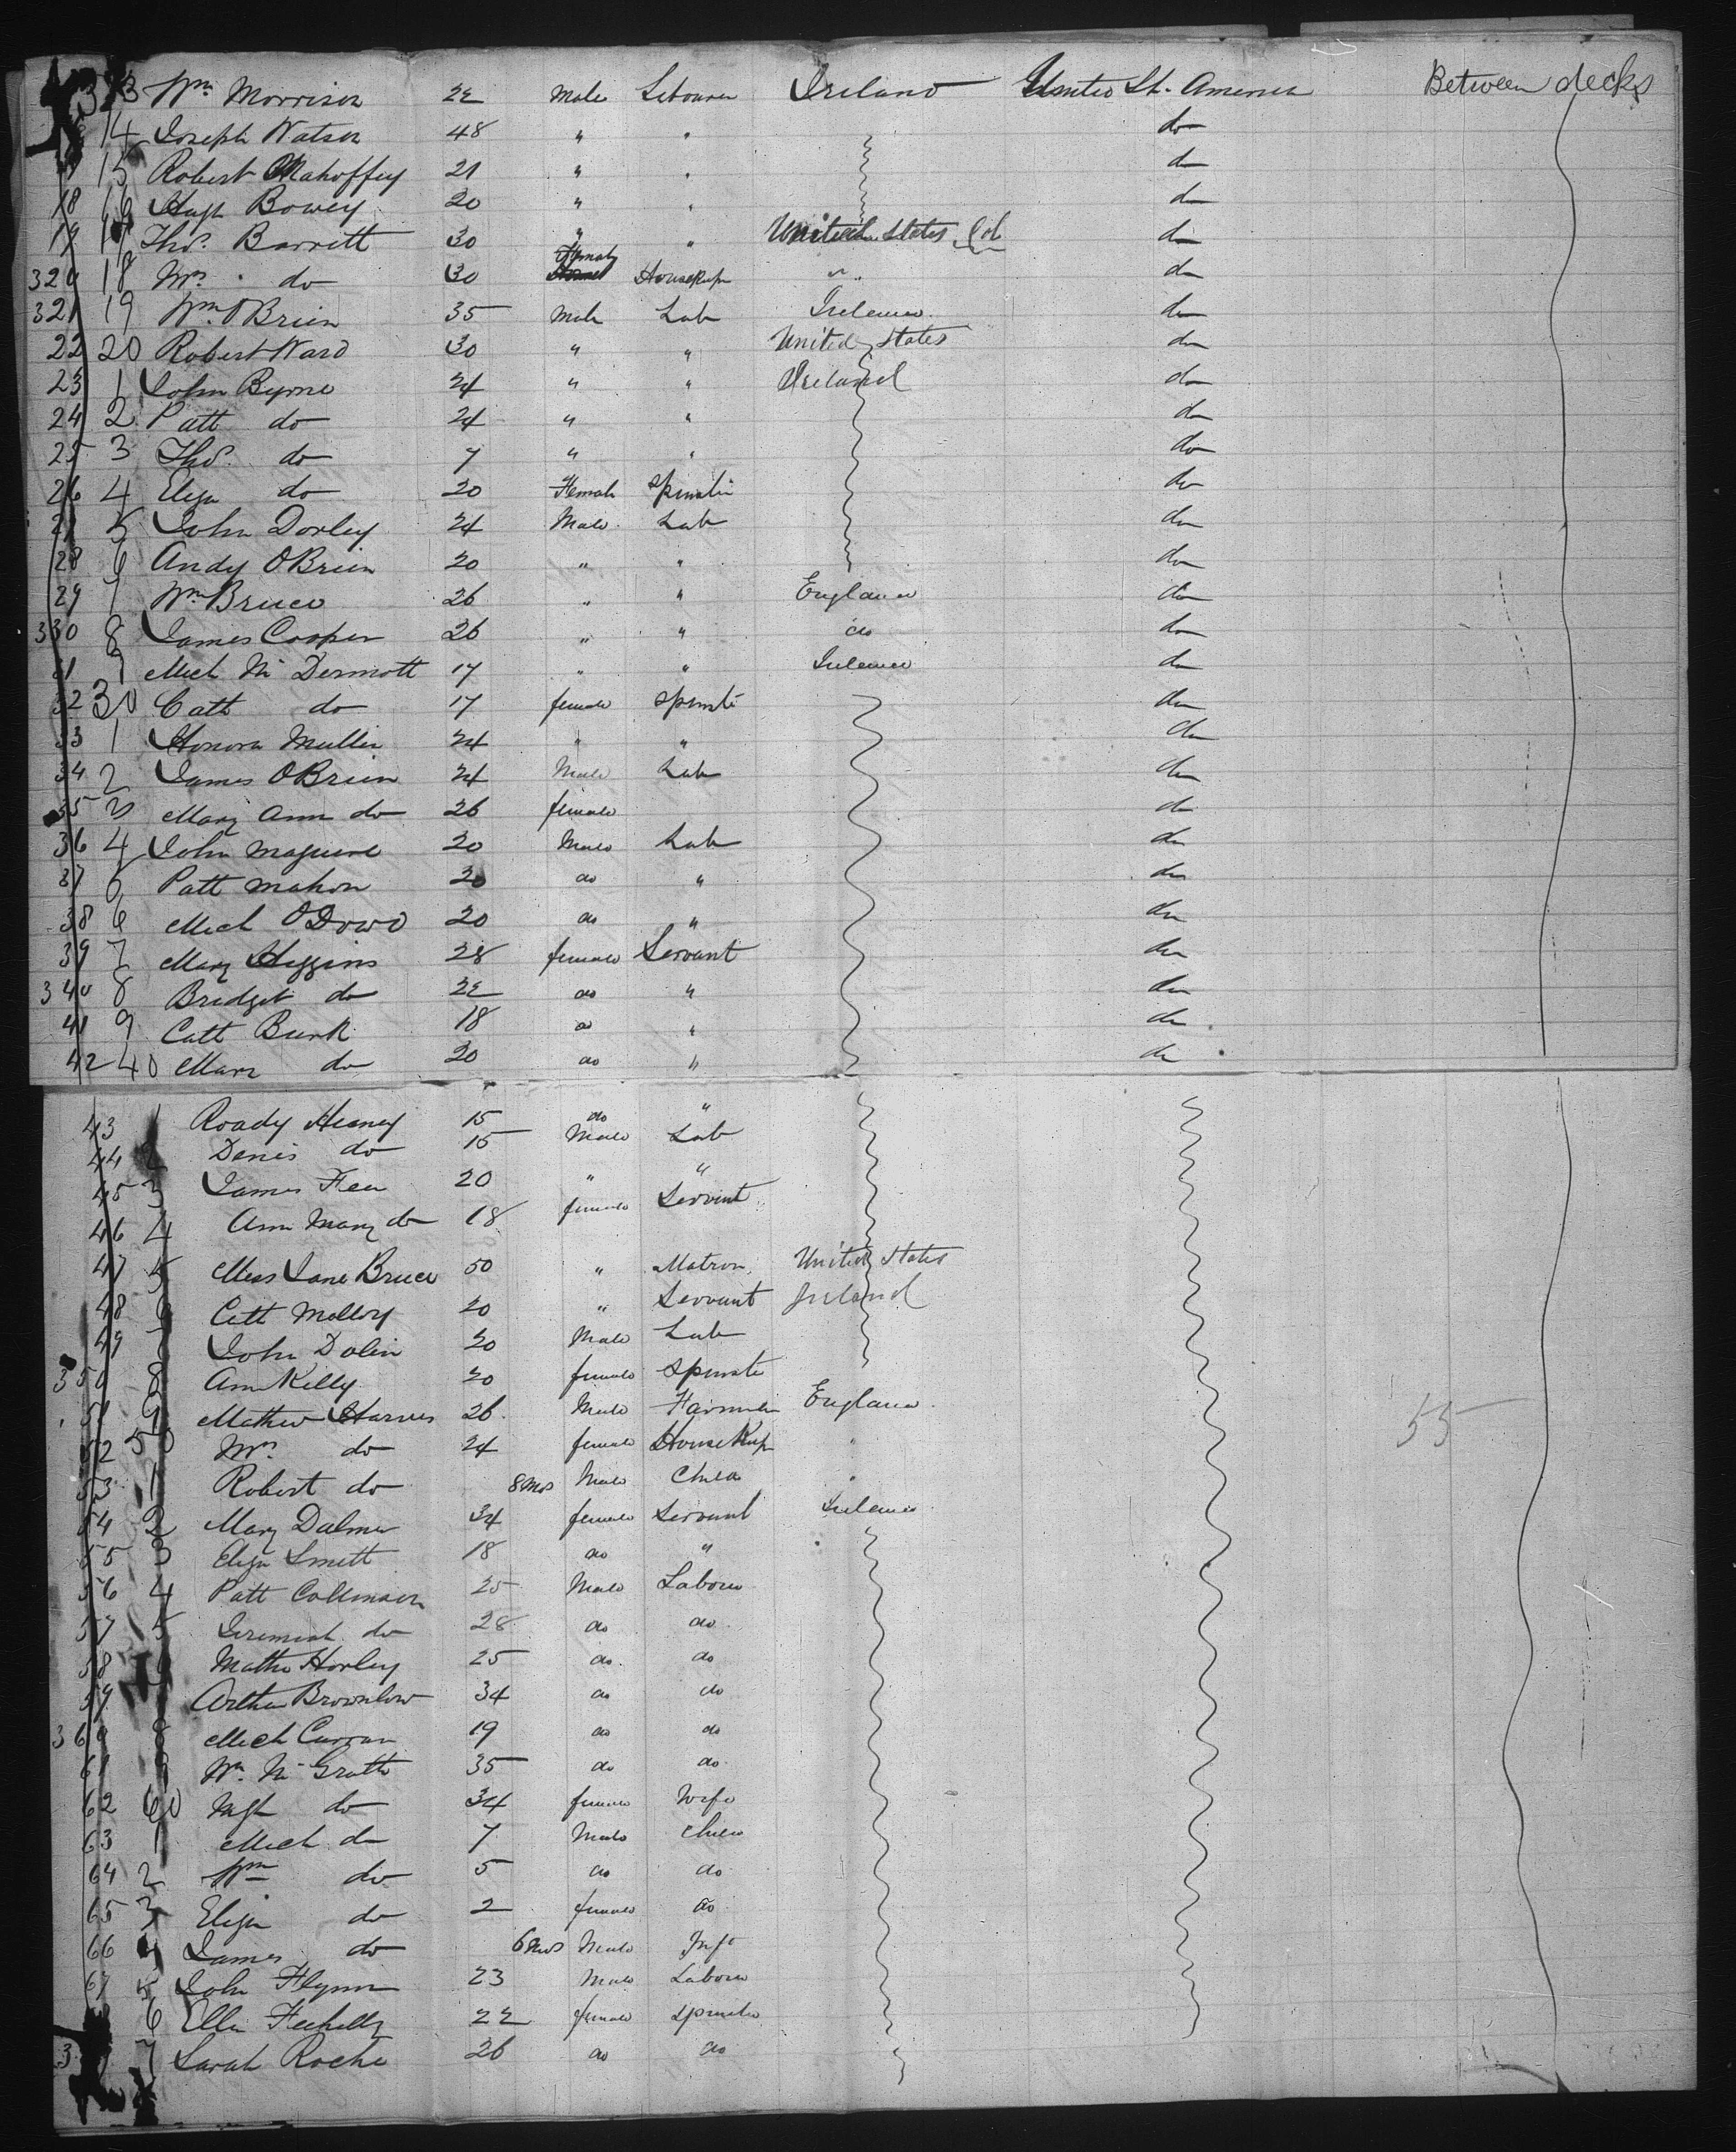 313 Wm Morrison 22 Male Labourer Ireland United St. America Between decks
14 Joseph Watson 48 " " do
15 Robert Mahaffey 21 " " do
18 16 Hugh Bowey 20 " " do
19 17 Thos. Barrett 30 " " United States do
320 18 Mrs do 30 Female Housekeepr " do
321 19 Wm O'Brien 35 Male Lab Ireland do
22 20 Robert Ward 30 " " United States do
23 1 John Byrne 24 " " Ireland do
24 2 Patt do 24 " " do
25 3 Thos. do 7 " " do
26 4 Eliza do 20 Female Spinster do
27 5 John Dorley 24 Male Lab do
28 6 Andy O'Brien 20 " " do
29 7 Wm Bruce 26 " " England do
330 8 James Cooper 26 " " do do
31 9 Mich McDermott 17 " " Ireland do
32 30 Cath do 17 female Spinste do
33 1 Honora Mullen 24 " " do
34 2 James O'Brien 24 Male Lab do
35 3 Mary Ann do 26 female do
36 4 John Maguire 20 Male Lab do
37 5 Patt Mahon 20 do " do
38 6 Mich O'Dowd 20 do " do
39 7 Mary Higgins 28 female Servant do
340 8 Bridget do 22 do " do
41 9 Cath Burk 18 do " do
42 40 Mary do 20 do " do
43 1 Roady Heaney 15 do "
44 2 Denis do 15 Male Lab
45 3 James Fee 20 " "
46 4 Ann Mary do 18 female Servant
47 5 Jane Bruce 50 " Matron United States
48 6 Cath Molloy 20 " Servant Ireland
49 7 John Dolin 20 Male Lab
350 8 Ann Kelly 20 female Spinste
51 9 Mathew Harvis 26 Male Farmer England
52 50 Mrs do 24 female HouseKeep "
53 1 Robert do 8 Mos Male Child " 55
54 2 Mary Dalmer 34 female Servant Ireland
55 3 Eliza Smitt 18 do "
56 4 Patt Collman 25 Male Laborer
57 5 Jeremiah do 28 do do
58 6 Mathw Horley 25 do do
59 Arthur Brownlow 34 do do
360 8 Mich Curran 19 do do
61 9 Wm McGrath 35 do do
62 60 Mgt do 34 female Wife
63 1 Mich do 7 Male Child
64 2 Wm do 5 do do
65 3 Eliza do 2 female do
66 4 James do 6 Mos Male Inft
67 5 John Flynn 23 Male Laborer
6 Ellen 22 female Spinster
3 7 Sarah Roche 26 do do